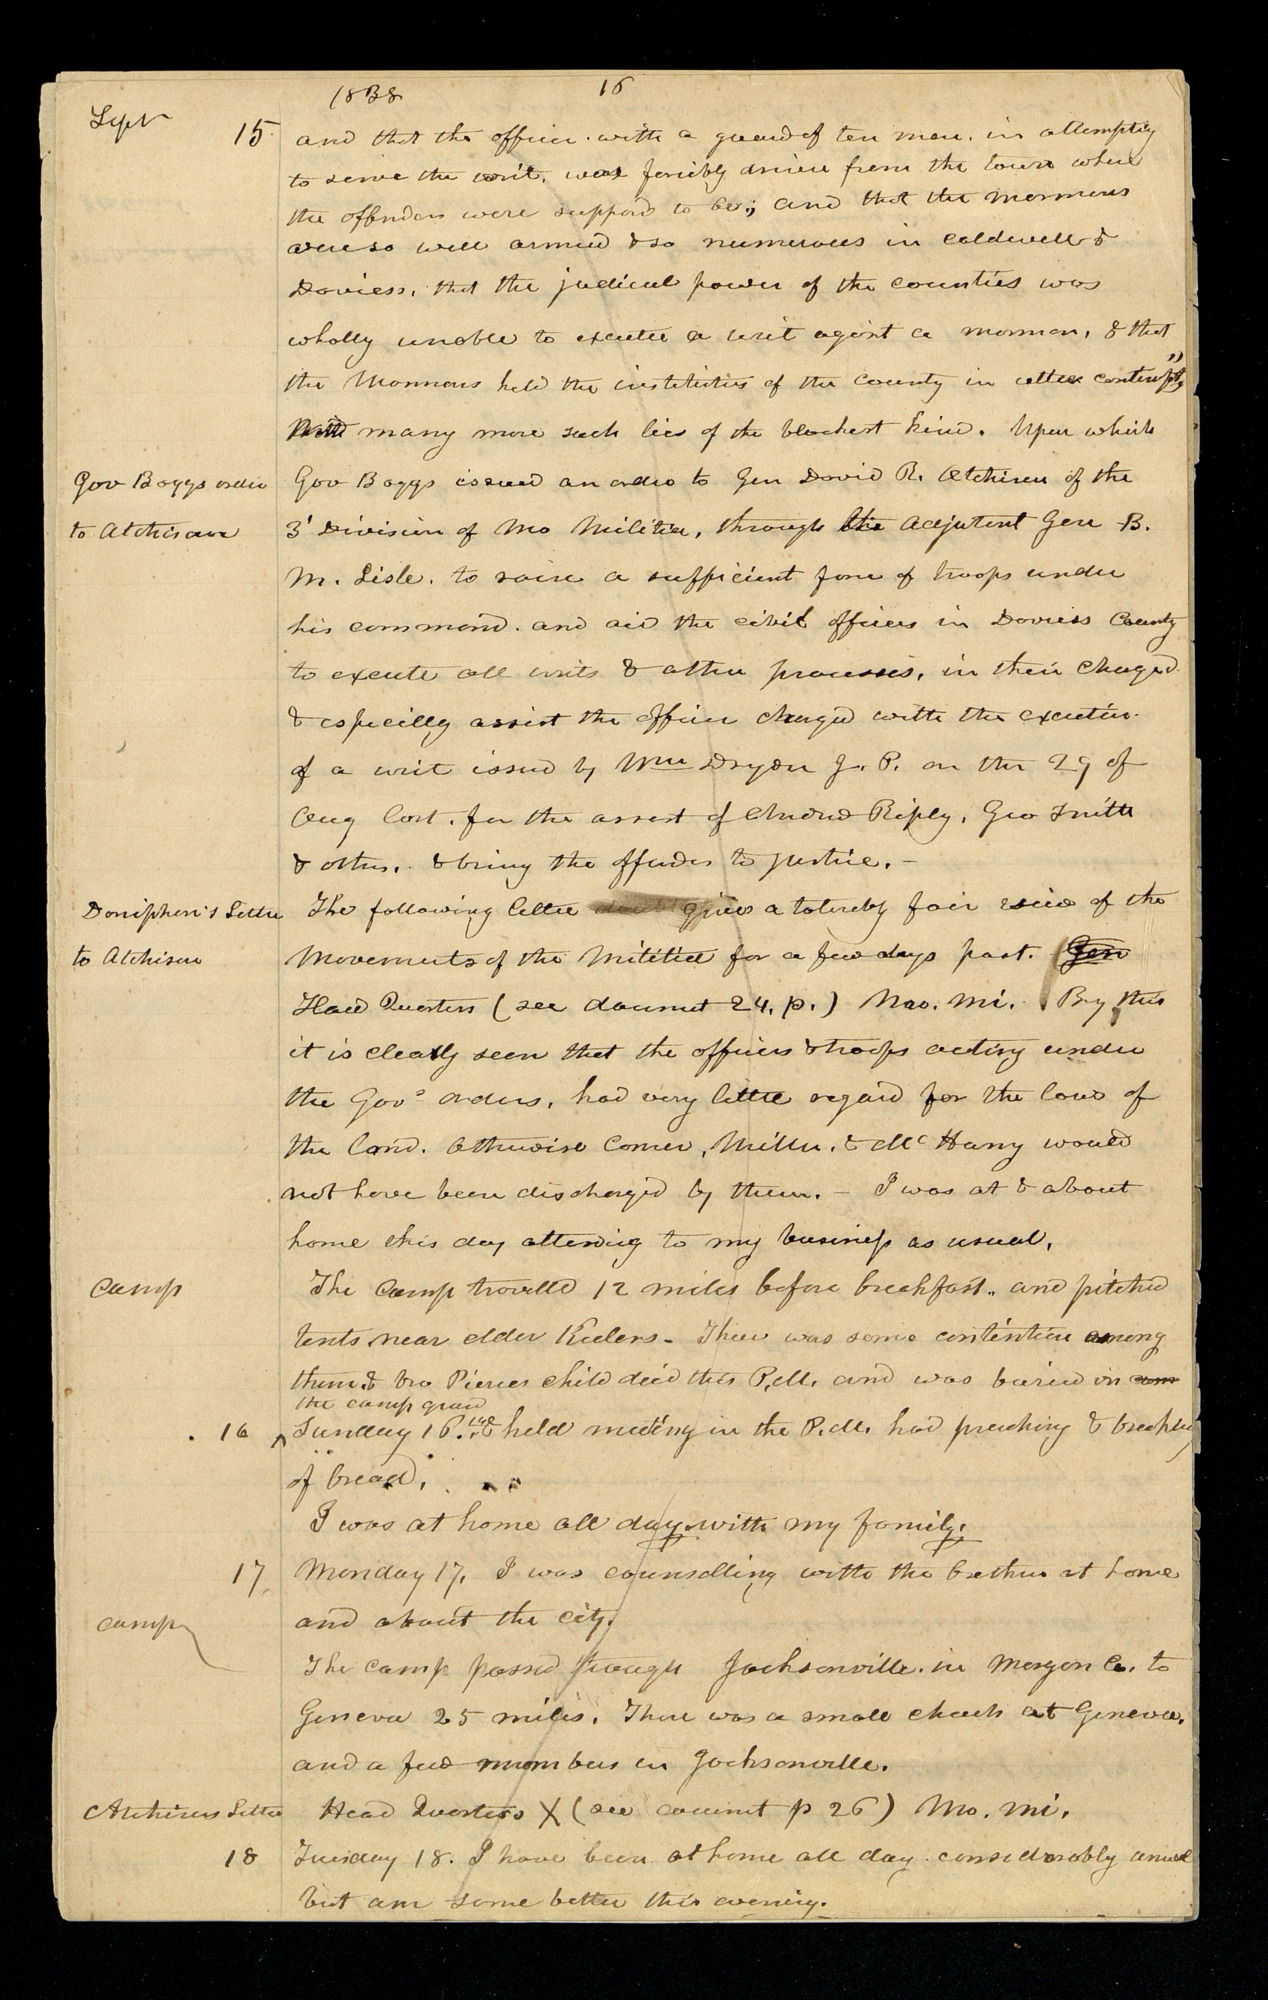 1838 16
Sept 15 and that the officer. with a guard of ten men. in attemptig
to serve the writ. was forcibly driven from the town where
the offenders were supposd to be; and that the mormons
were so well armed & so numerous in Caldwell &
Daviess, that the judicial power of the counties was
wholly unable to execute a writ agint a mormon, & that
the Mormons held the instituties of the county in utter contempt"
many more such lies of the blackest kind. Upon which
Gov Boggs order Gov Boggs issued an order to Gen David R. Atchison of the
to Atchison 3d Division of Mo Militia, through the Adjutent Gen B.
M. Lisle. to raise a sufficient force of troops under
his command. and aid the civil officers in Daviess County
to execute all writs & other processes, in their charge
& espicilly assist the officer charged with the execution.
of a writ issud by Wm Dryden J. P. on the 29 of
Aug last. for the arrest of Andrw Riply, Geo Smith
& othrs. & bring the offenders to justice. —
Doniphan's Letter The following letter gives a tolerebly fair view of the
to Atchison Movements of the Militia for a few days past. Gen
Head Quarters (see documnt 24. p.) Mao. Mi. By this
it is clearly seen that the officers & troops acting under
the Govs orders, had very little regard for the laws of
the land. Otherwise Comer, Miller, & McHany would
not have been discharged by them. — I was at & about
home this day attending to my business as usual,
Camp The Camp travelled 12 miles before breakfast., and pitched
tents near elder Keelers — There was some contention among
them. & bro Pierces child died this P.M. and was buried in cam
the camp groud
16 Sunday 16. & held meeting in the P.M. had preaching & breaking
of bread.
I was at home all day with my family.
17 Monday 17. I was counselling with the brethren at home
and about the city.
camp The camp passed through Jacksonville. in Morgan Co. to
Geneva 25 miles. There was a small church at Geneva.
and a few members in Jacksonville.
Atchisons Letter Head Quarters X (see documnt p 26) Mo. Mi.
18 Tuesday 18. I have been at home all day. considerably unwell
but am some better this evening.